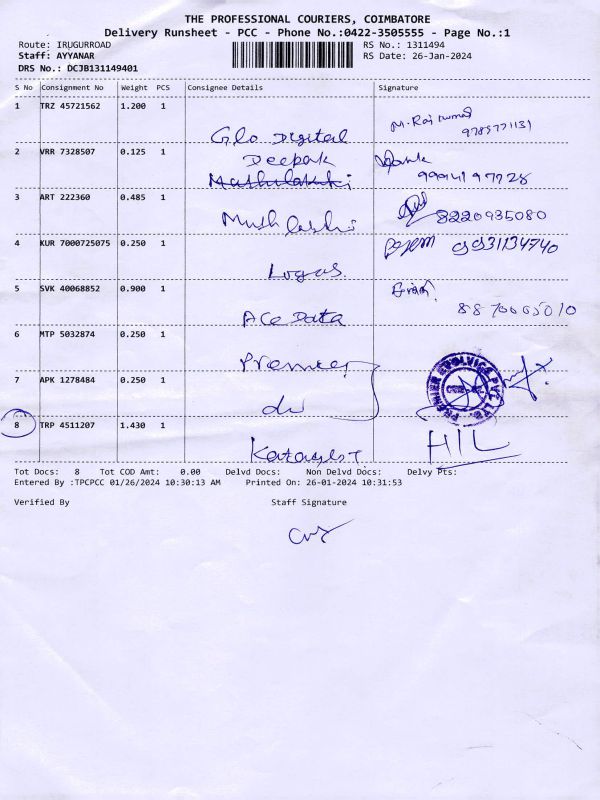 THE PROFESSIONAL COURIERS, COIMBATORE
Delivery Runsheet - PCC - Phone No.:0422-3505555 - Page No.:1
Route: IRUGURROAD RS No.: 1311494
Staff: AYYANAR RS Date: 26-Jan-2024
DRS No.: DCJB131149401
S No Consignment No Weight PCS Consignee Details Signature
1 TRZ 45721562 1.200 1
Glo Digital M. Raj Kumar
9785771131
2 VRR 7328507 0.125 1
Deepak
9994197728
3 ART 222360 0.485 1
Mush Lashi 8220935080
4 KUR 7000725075 0.250 1
Logas
5 SVK 40068852 0.900 1
Ace Data 8870005010
6 MTP 5032874 0.250 1
Premier
7 APK 1278484 0.250 1
do
PREMIER EVOLVICS PVT LTD.
8 TRP 4511207 1.430 1
HIL
Tot Docs: 8 Tot COD Amt: 0.00 Delvd Docs: Non Delvd Docs: Delvy Pts:
Entered By :TPCPCC 01/26/2024 10:30:13 AM Printed On: 26-01-2024 10:31:53
Verified By Staff Signature